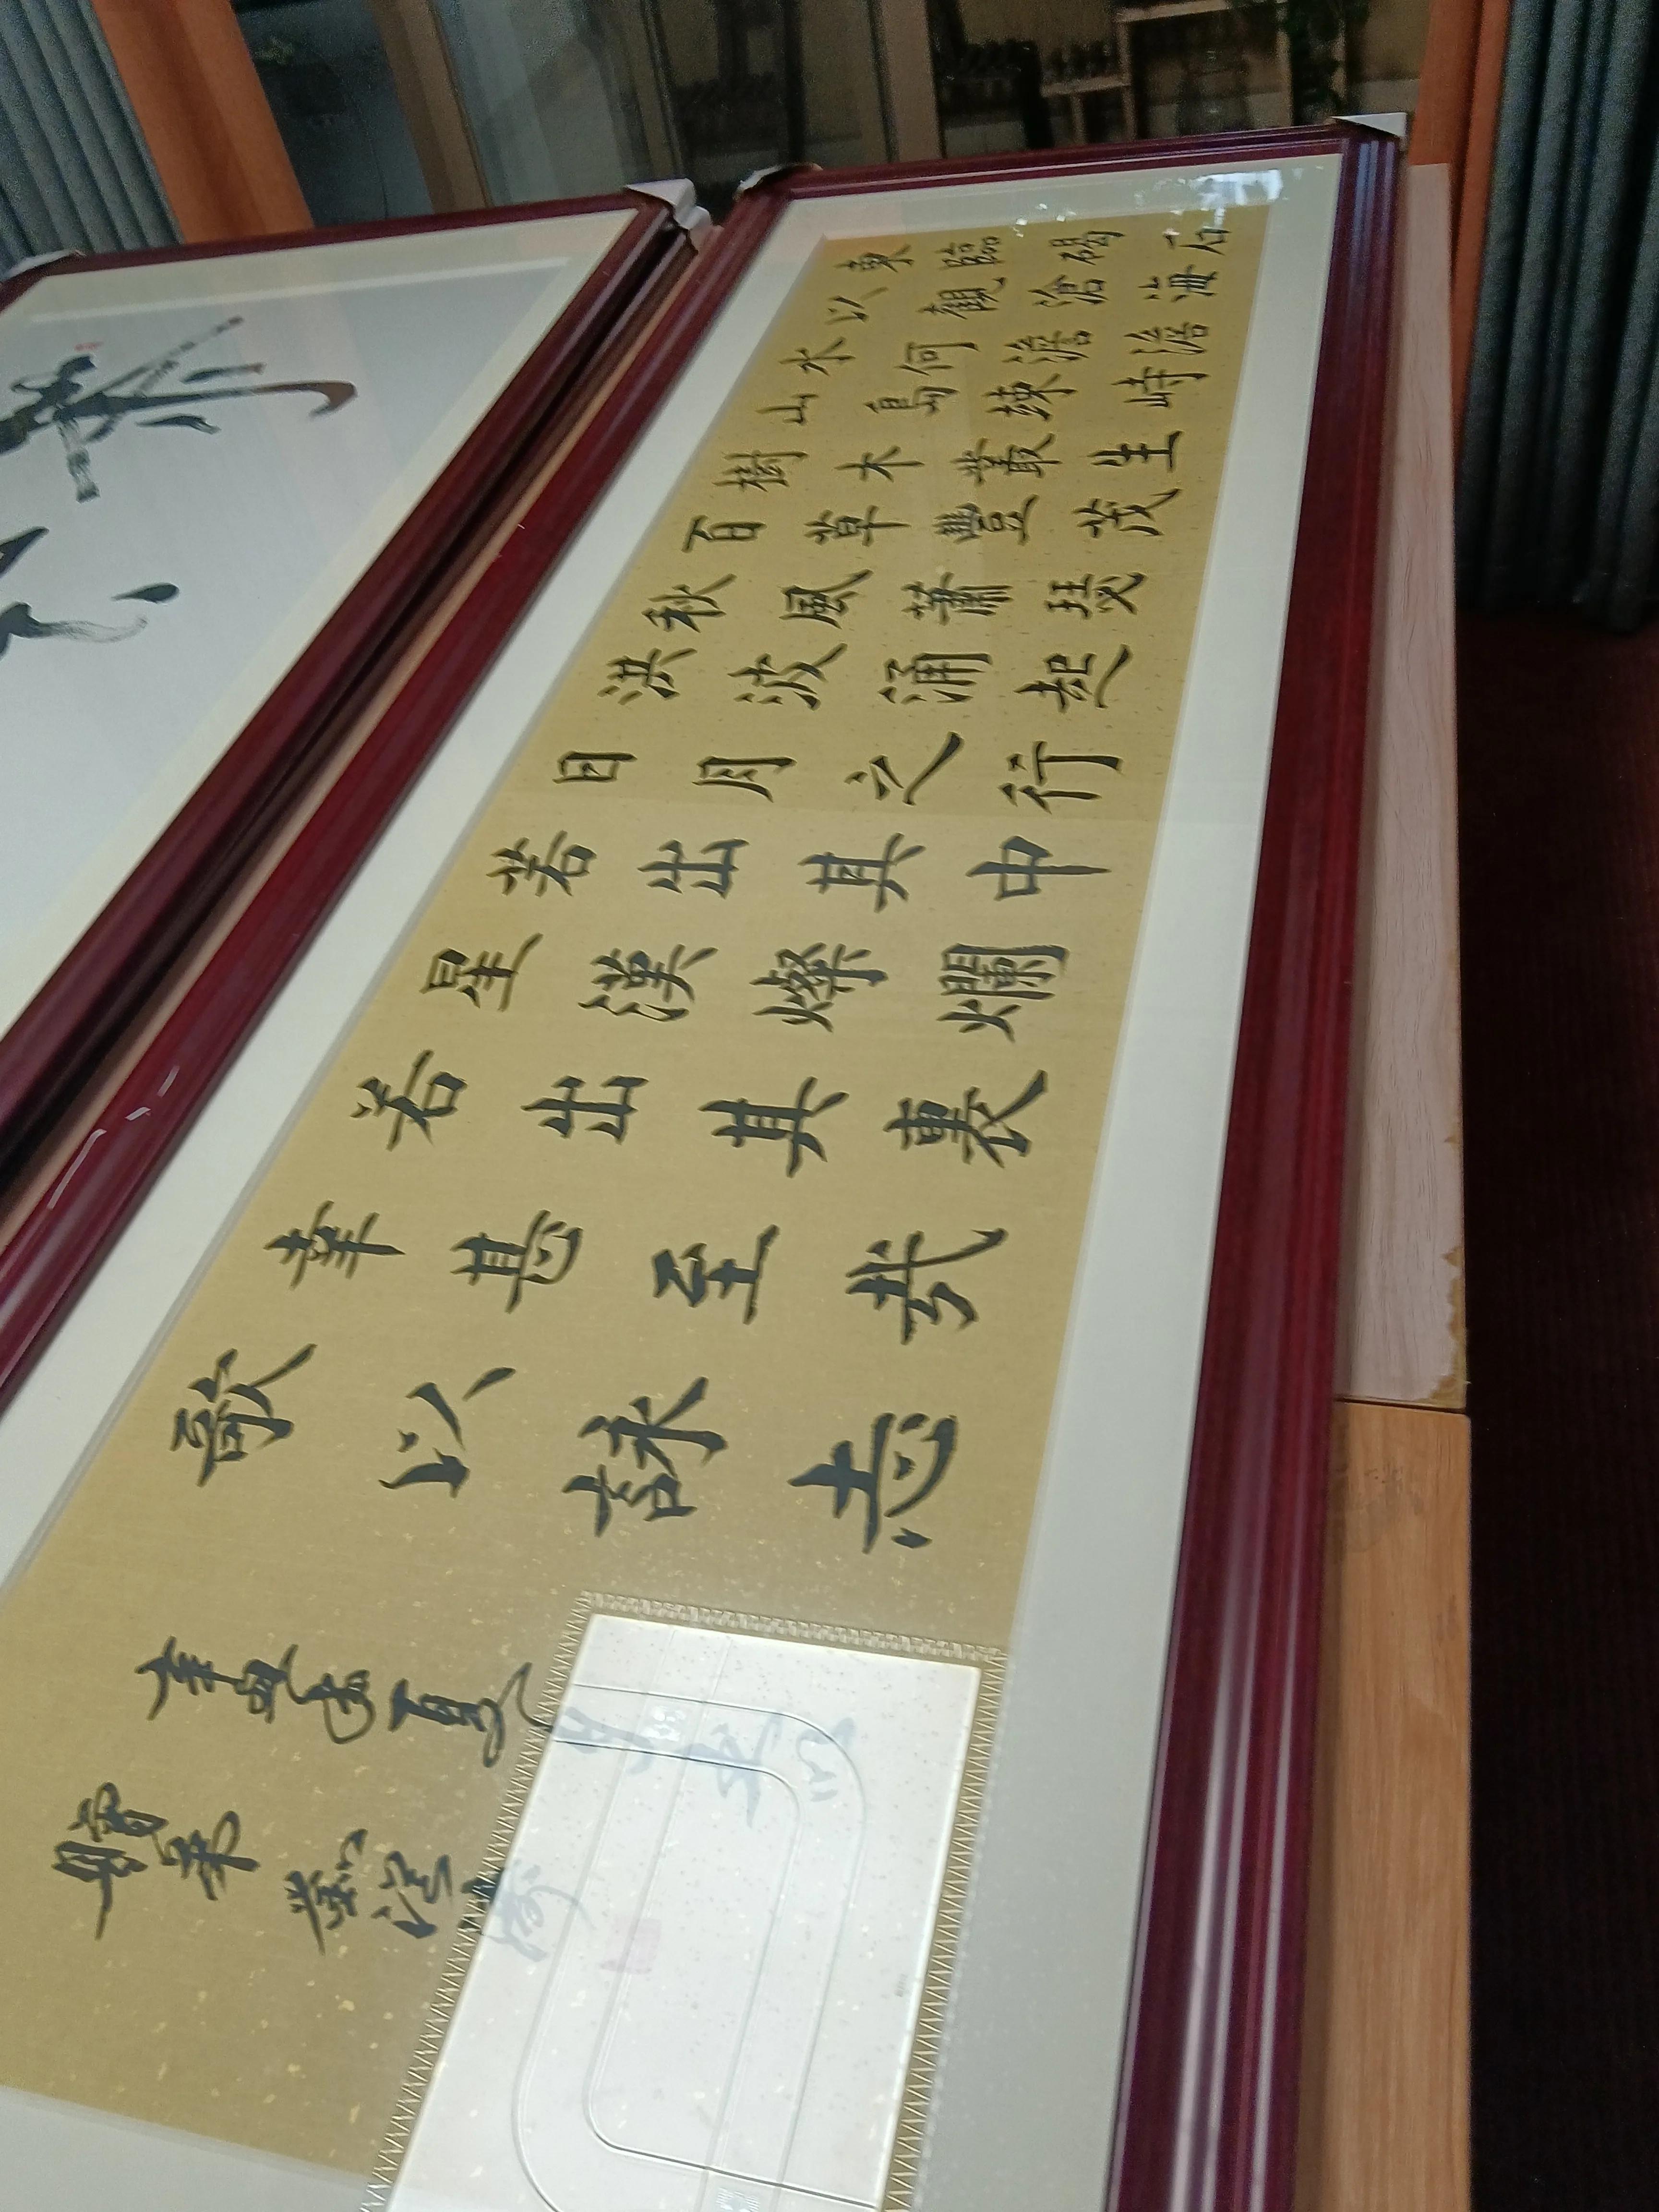 東臨碣石
以觀滄海
水何澹澹
山島竦峙
樹木叢生
百草豐茂
秋風蕭瑟
洪波涌起
日月之行
若出其中
星漢燦爛
若出其裏
幸甚至哉
歌以詠志
辛丑夏